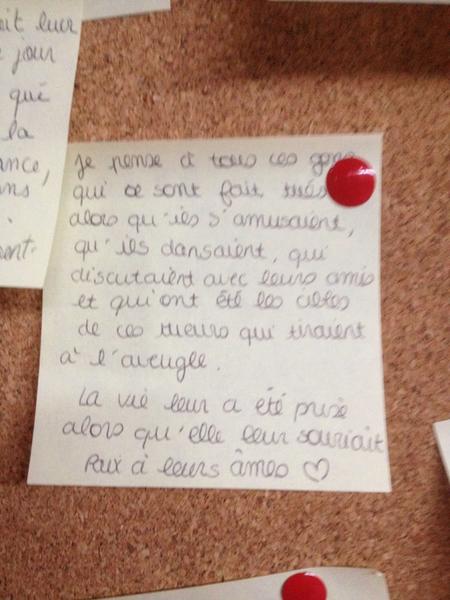 it leur
jour
que
la
ance,
ans
.
ent.
Je pense à tous ces gens
qui se sont fait tués
alors qu'ils s'amusaient,
qu'ils dansaient, qui
discutaient avec leurs amis
et qui ont été les cibles
de ces tueurs qui tiraient
à l'aveugle.
La vie leur a été prise
alors qu'elle leur souriait
Paix à leurs âmes ♡